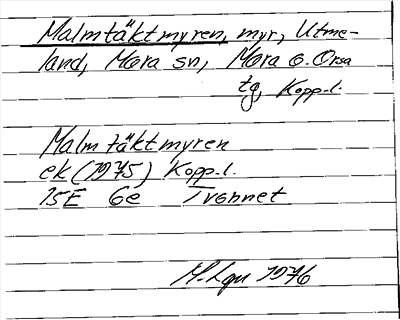 Malmtäktmyren, myr, Utme-
land, Mora sn, Mora o. Orsa
tg, Kopp.l.
Malmtäktmyren
ek (1975) Kopp.l.
15E 6e
1976